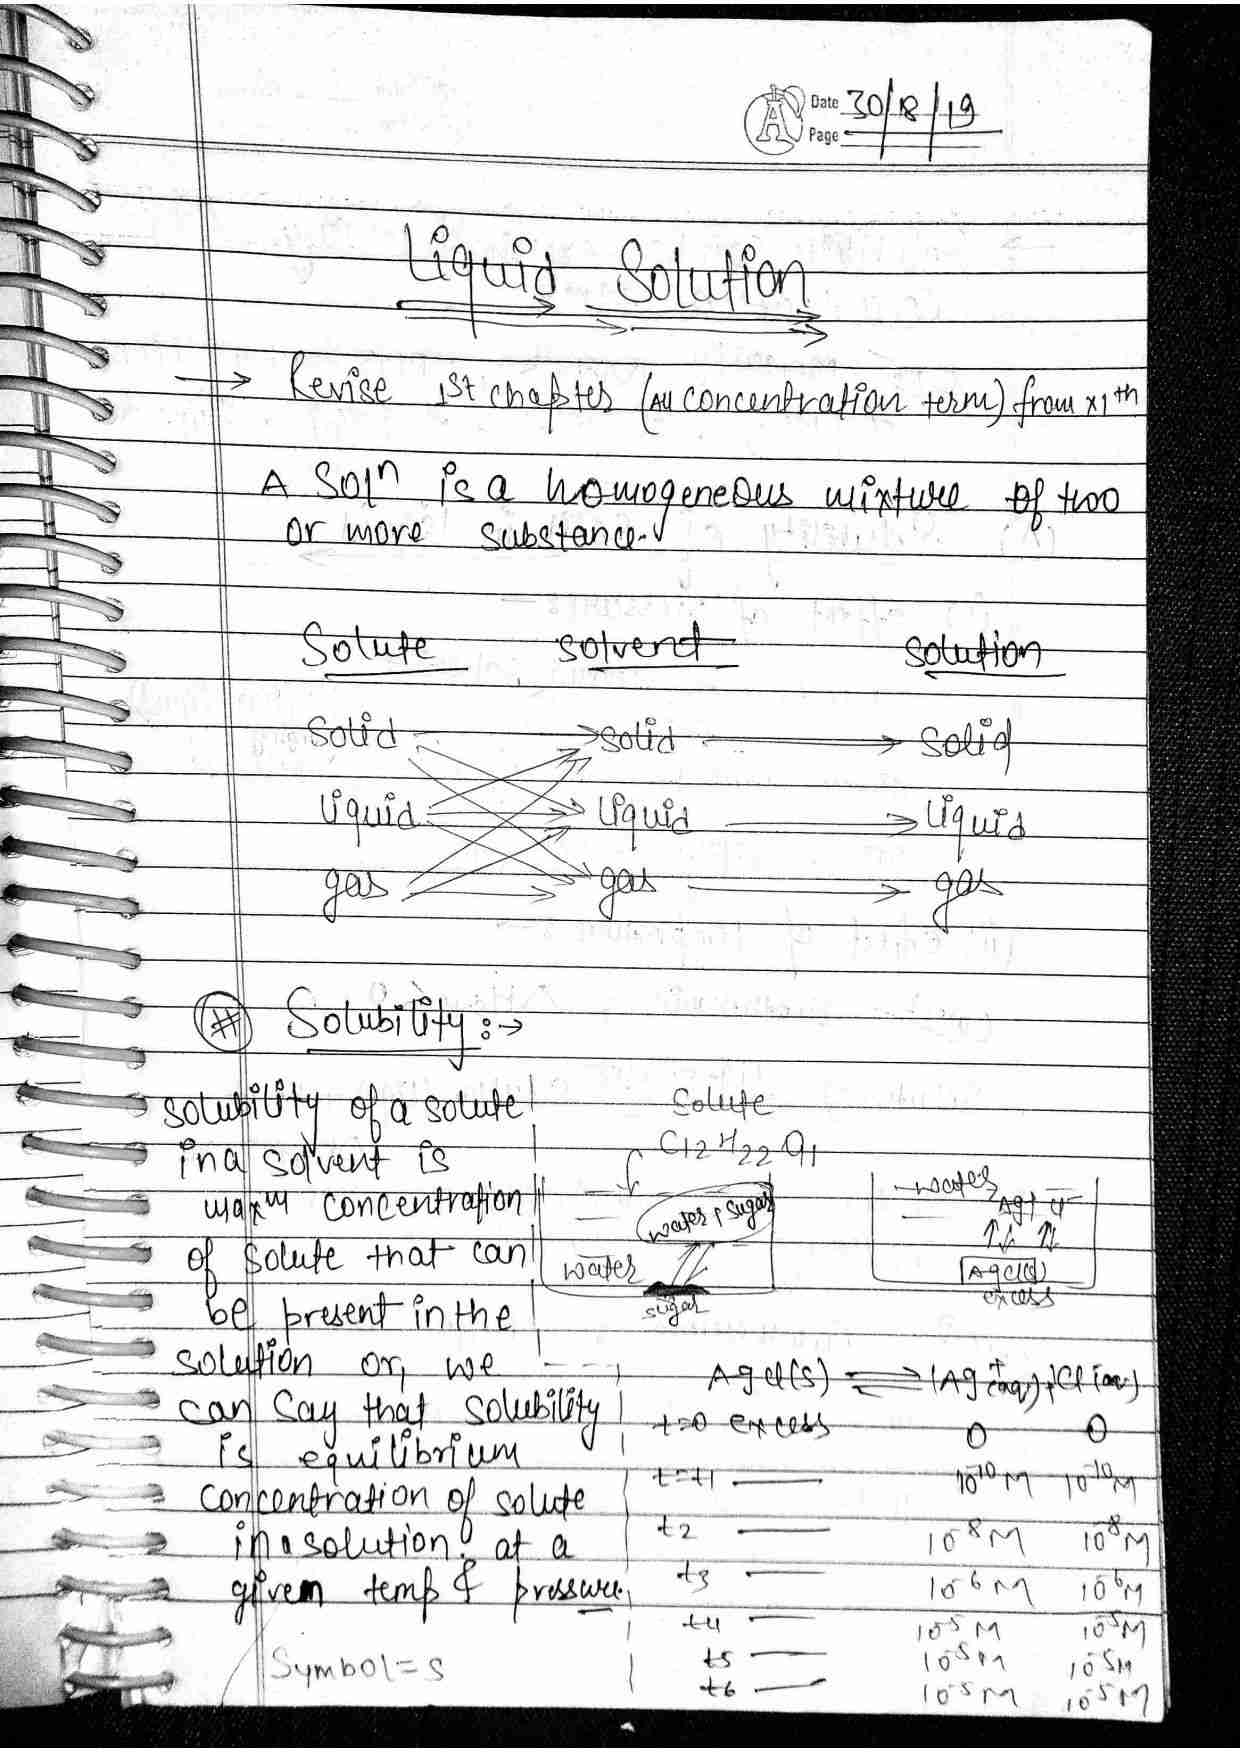 Date 30/8/19
Page
Liquid Solution
→ Revise 1st chapter (All concentration term) from x1th
A Solⁿ is a homogeneous mixture of two
or more substance.
Solute solvent solution
Solid → solid → solid
liquid → liquid → liquid
gas → gas → gas
# Solubility :→
solubility of a solute
in a solvent is
maxᵐ concentration
of solute that can
be present in the
solution or, we
can say that solubility
is equilibrium
concentration of solute
in a solution. at a
given temp & pressure.
Symbol = s
Solute
C12H22O11
water + sugar
water
sugar
water
Ag+ Cl-
AgCl(s)
excess
AgCl(s) ⇌ (Ag+(aq)) + Cl-(aq)
t=0 excess 0 0
t=t1 — 10⁻¹⁰M 10⁻¹⁰M
t2 — 10⁻⁸M 10⁻⁸M
t3 — 10⁻⁶M 10⁻⁶M
t4 — 10⁻⁵M 10⁻⁵M
t5 — 10⁻⁵M 10⁻⁵M
t6 — 10⁻⁵M 10⁻⁵M